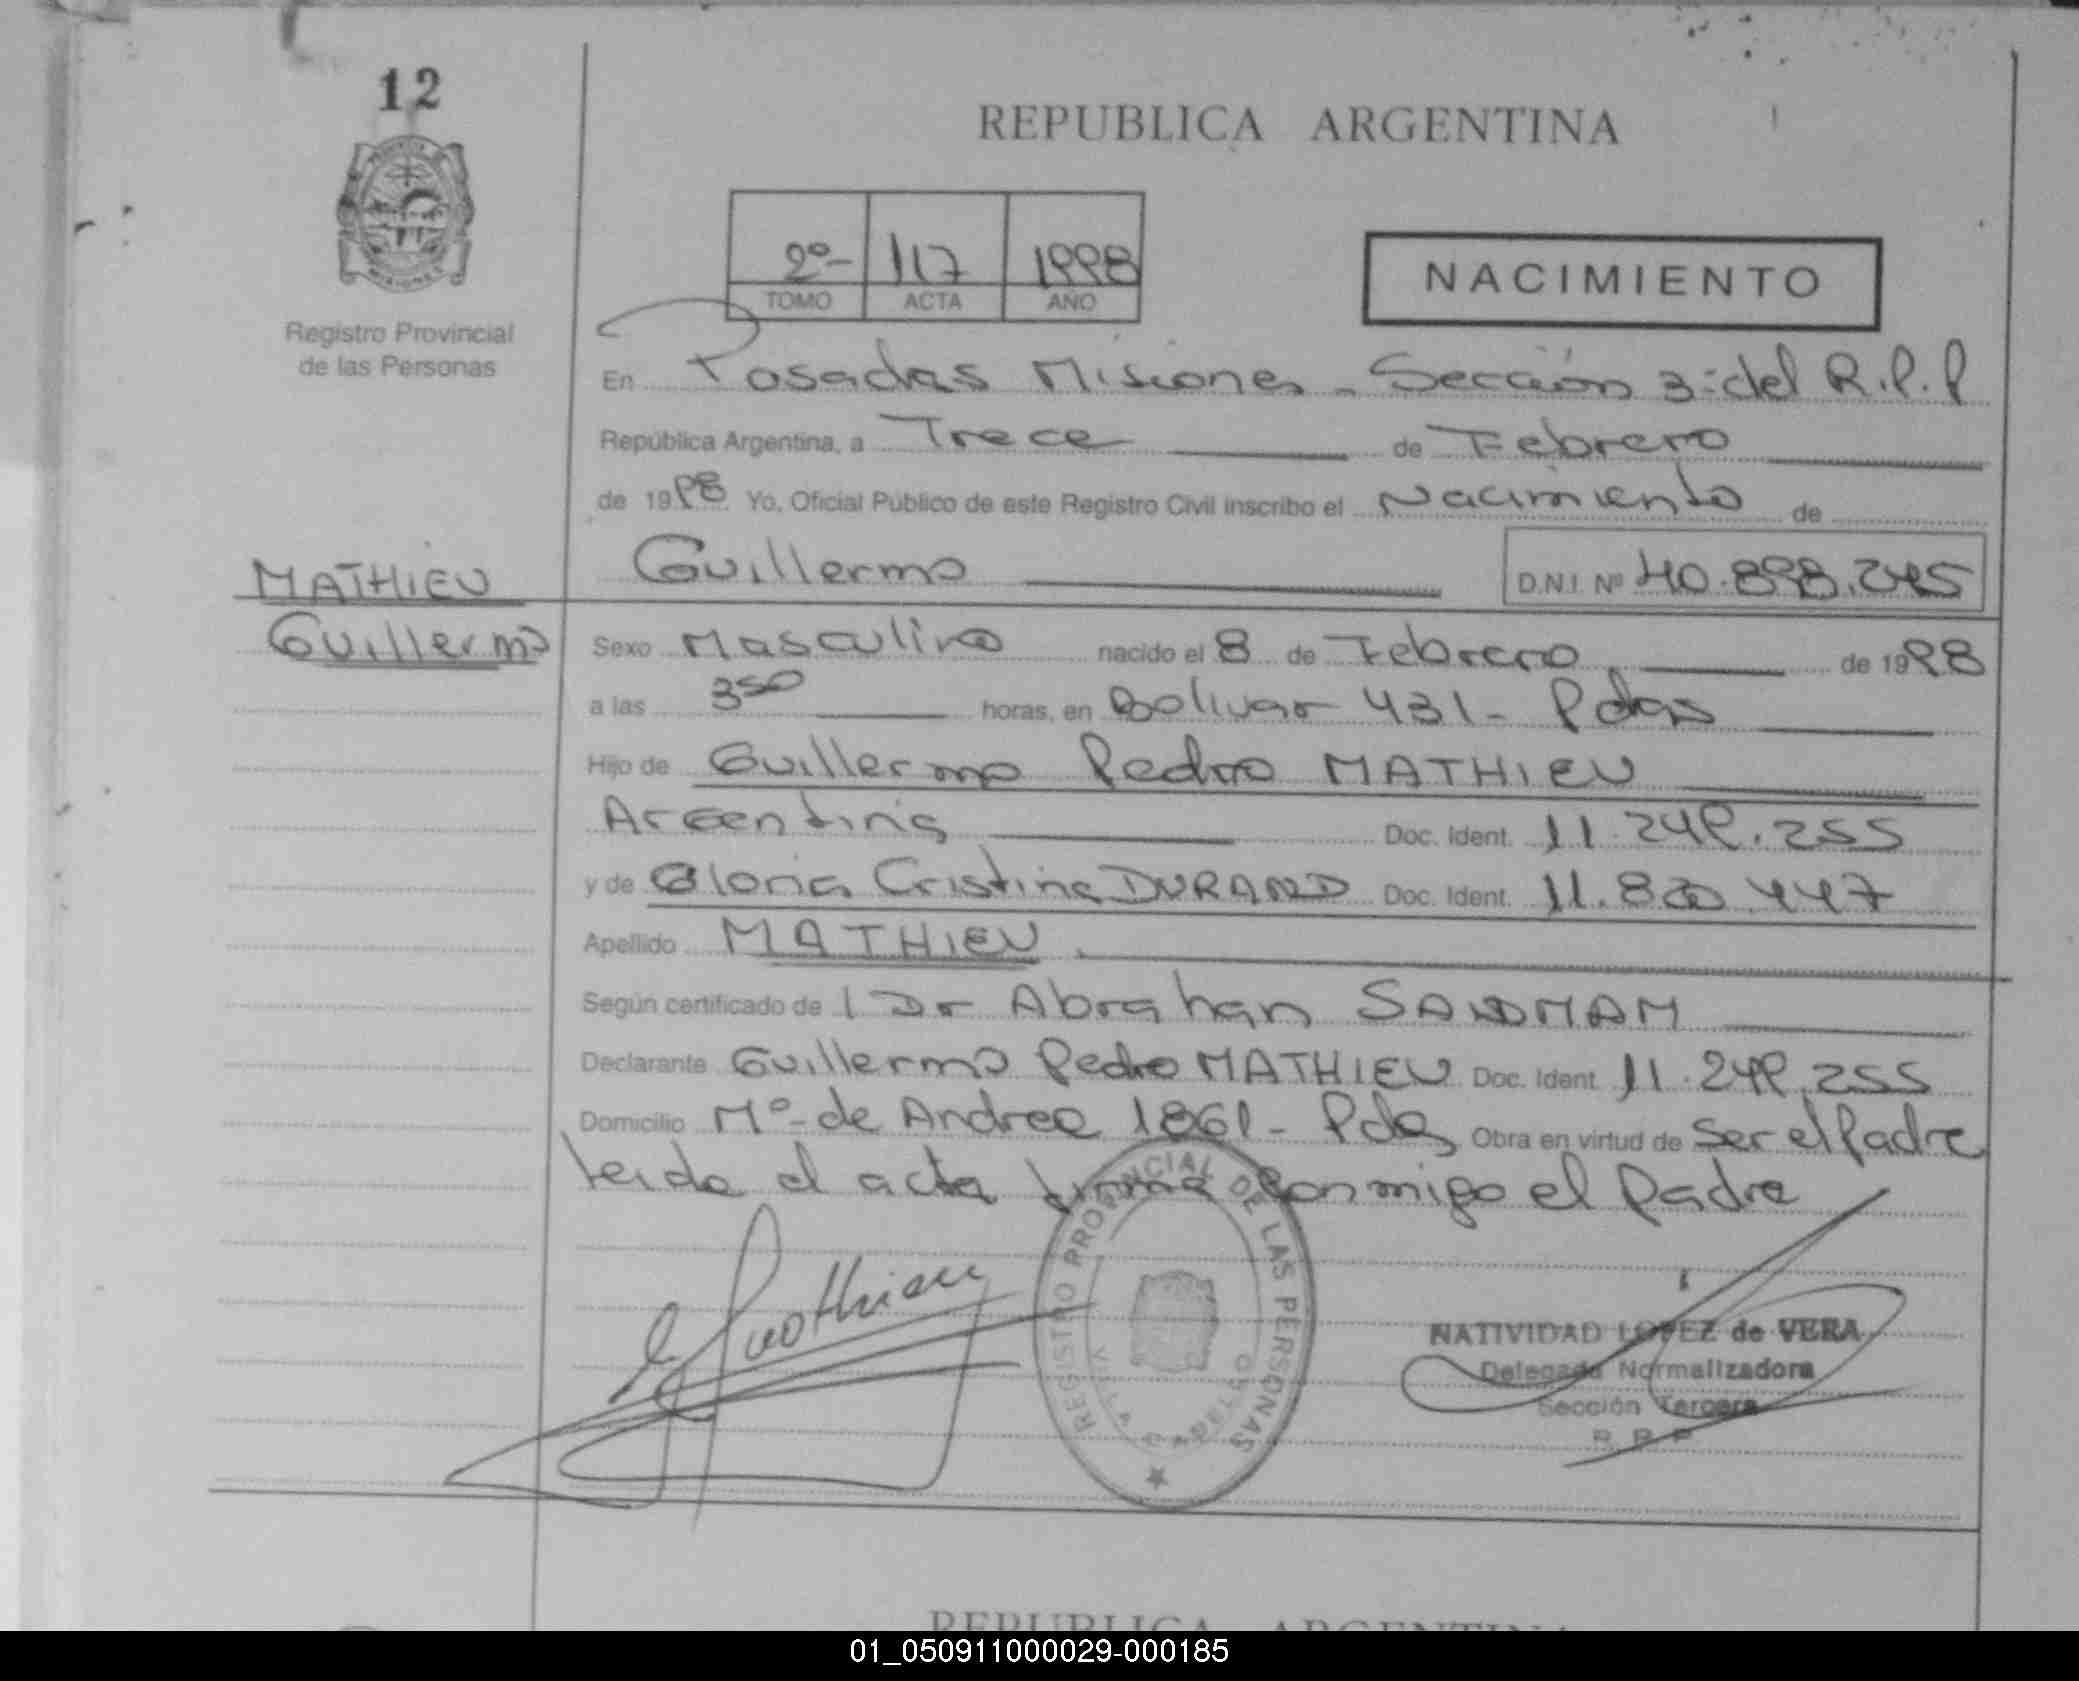 12
REPUBLICA ARGENTINA
2º- 117 1998
TOMO ACTA AÑO
NACIMIENTO
Registro Provincial
de las Personas
En Posadas Misiones - Sección 3º del R.P.P
República Argentina, a Trece de Febrero
de 1998 Yo, Oficial Público de este Registro Civil inscribo el Nacimiento de
MATHIEU
Guillermo D.N.I. Nº 40.898.245
Guillermo
Sexo Masculino nacido el 8 de Febrero de 1998
a las 350 horas, en Bolivar 431- Pdas
Hijo de Guillermo Pedro MATHIEU
Argentina Doc. Ident. 11.249.255
y de Gloria Cristina DURAND Doc. Ident. 11.830.447
Apellido MATHIEU
Según certificado de l Dr Abrahan SANDMAM
Declarante Guillermo Pedro MATHIEU Doc. Ident. 11.249.255
Domicilio Mº- de Andrea 1861- Pdas Obra en virtud de Ser el Padre
leida el acta firma conmigo el Padre
REGISTRO PROVINCIAL DE LAS PERSONAS
NATIVIDAD LOPEZ de VERA
Delegada Normalizadora
Sección Tercera
R. P. P.
REPUBLICA ARGENTINA
01_050911000029-000185